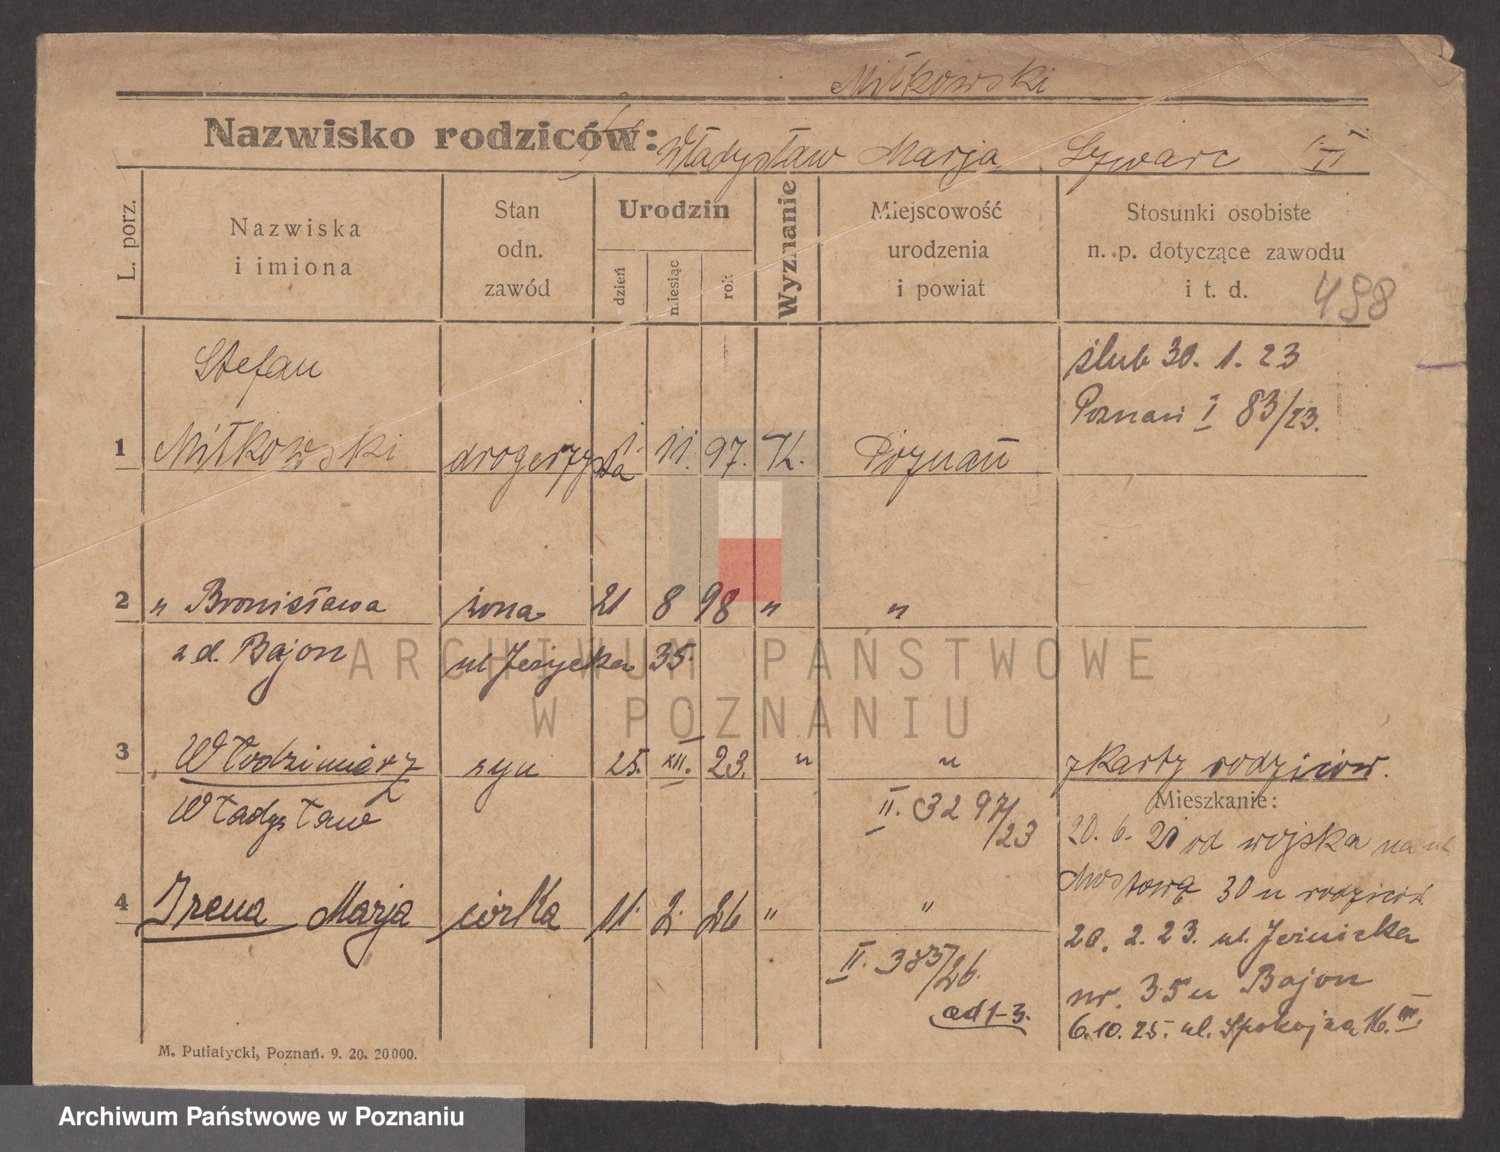 Miłkowski
Nazwisko rodziców: Władysław Marja Szwarc
L. porz.
Nazwiska i imiona
Stan odn. zawód
Urodzin
dzień miesiąc rok
Wyznanie
Miejscowość urodzenia i powiat
Stosunki osobiste n. p. dotyczące zawodu i t. d.
498
Stefan
ślub 30. 1. 23
Poznań I 83/23.
1 Miłkowski drogerzysta 1. 11. 97. K. Poznań
2 " Bronisława żona 21 8 98 " "
z d. Bajon ul Jeżycka 35.
3 Włodzimierz syn 25. XII. 23. " " z karty rodziców.
Władysław II. 3297/23
Mieszkanie:
20. 6. 21 od wojska na ul
Mostową 30 u rodziców
4 Irena Marja córka 11. 2. 26 " "
20. 2. 23. ul. Jeżycka
II. 383/26.
nr. 35 u Bajon
ad 1-3.
6.10.25. ul. Spokojna 16. III.
M. Putiatycki, Poznań. 9. 20. 20000.
ARCHIWUM PAŃSTWOWE
W POZNANIU
Archiwum Państwowe w Poznaniu